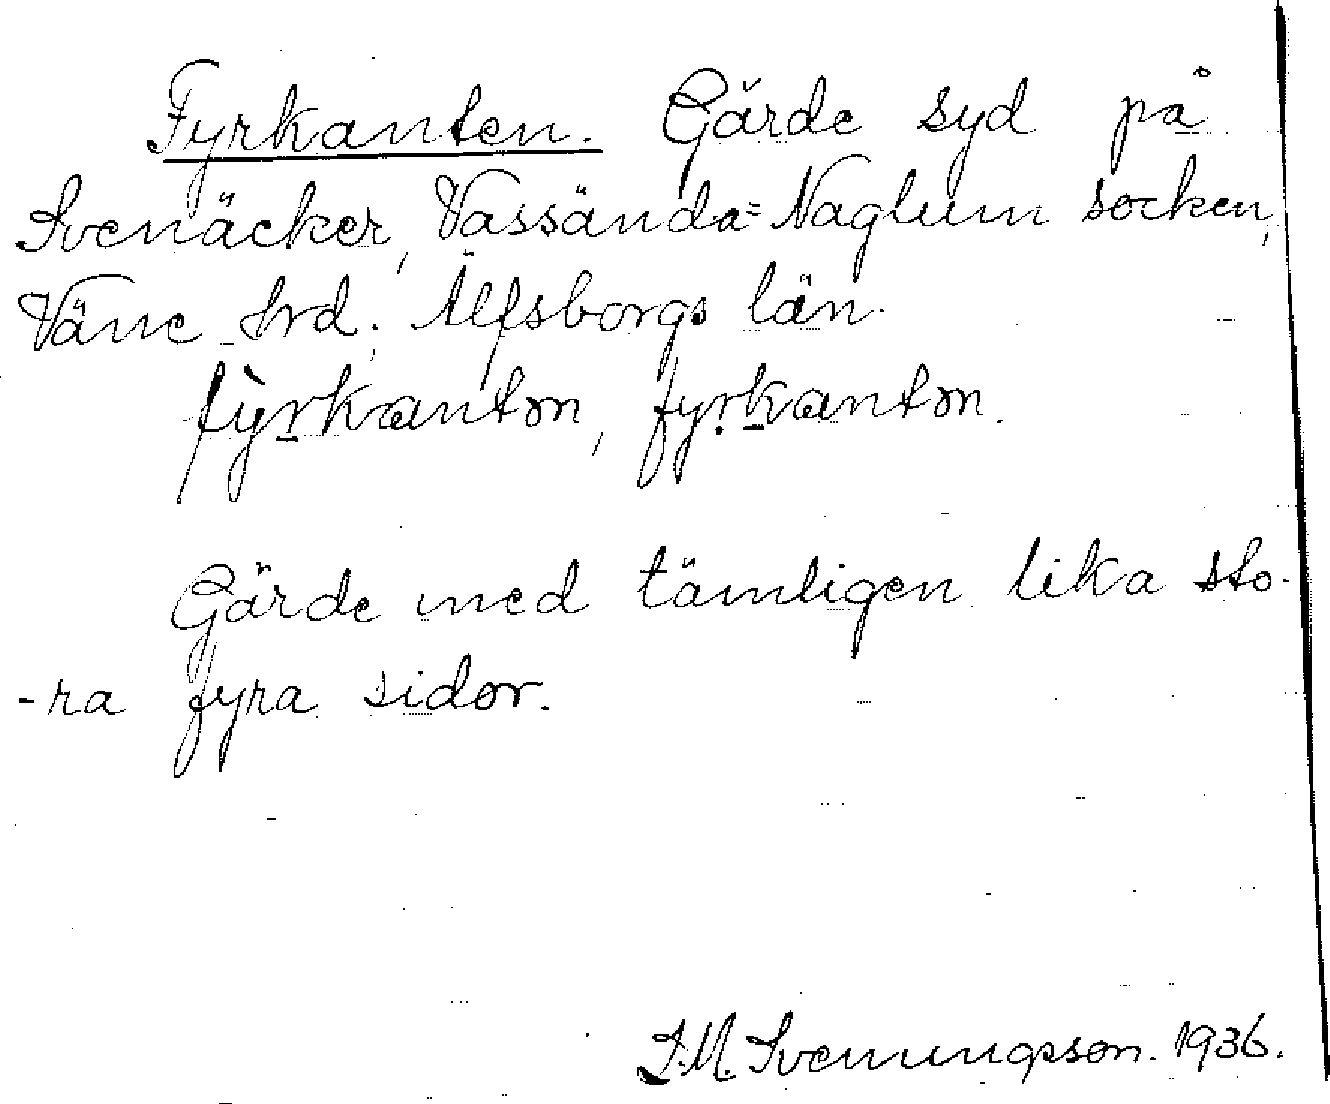 Fyrkanten. Gärde syd på
Svenäcker, Vassända=Naglum socken,
Väne hrd. Älfsborgs län.
fỳrkanton, fyrkanton.
Gärde med tämligen lika sto-
-ra fyra sidor.
J.M. Svenungsson. 1936.